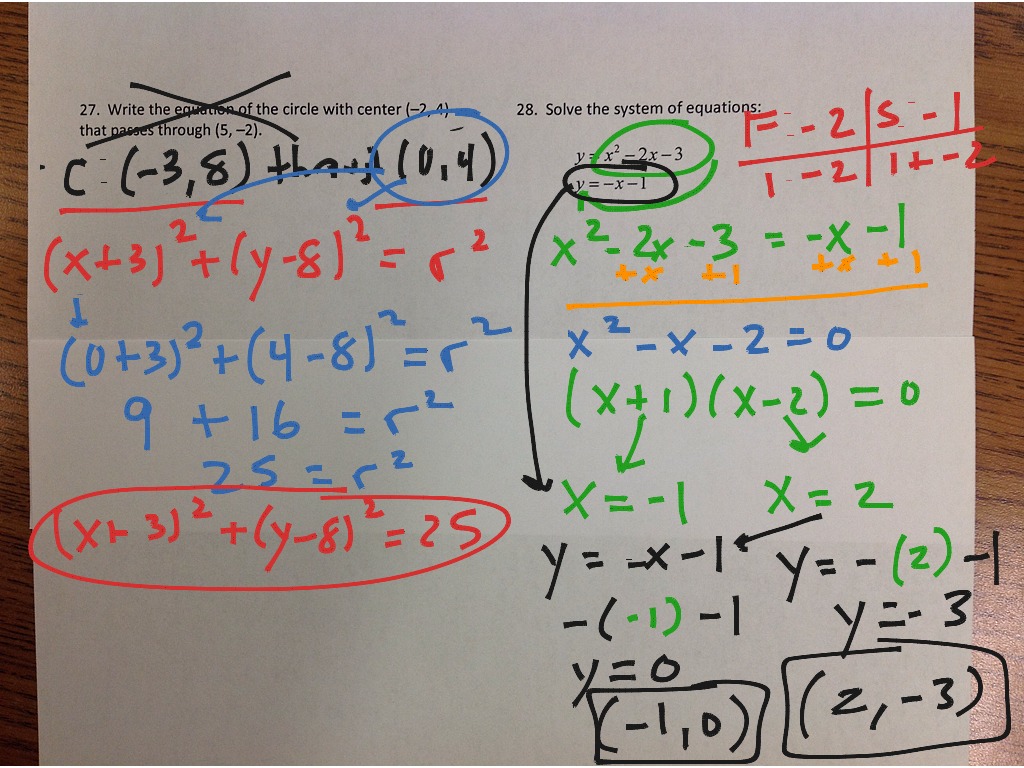 27. Write the equation of the circle with center (–2, 4)
that passes through (5, –2).
C = (-3,8) thru (0,4)
(x+3)² + (y-8)² = r²
(0+3)² + (4-8)² = r²
9 + 16 = r²
25 = r²
(x+3)² + (y-8)² = 25
28. Solve the system of equations:
y = x² – 2x – 3
y = –x – 1
x² - 2x - 3 = -x - 1
+x +1 +x +1
x² - x - 2 = 0
(x+1)(x-2) = 0
x = -1 x = 2
y = -x - 1 y = -(2) - 1
-(-1) - 1 y = -3
y = 0
(-1,0) (2,-3)
F = -2 S = -1
1 - -2 1 + -2